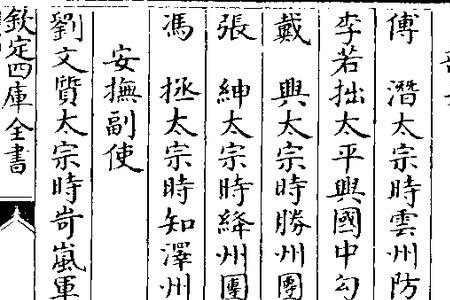 傅　潛太宗時雲州防
李若拙太平興國中勾
戴　興太宗時勝州團
張　紳太宗時絳州團
馮　拯太宗時知澤州
安撫副使
劉文質太宗時岢嵐軍
欽定四庫全書